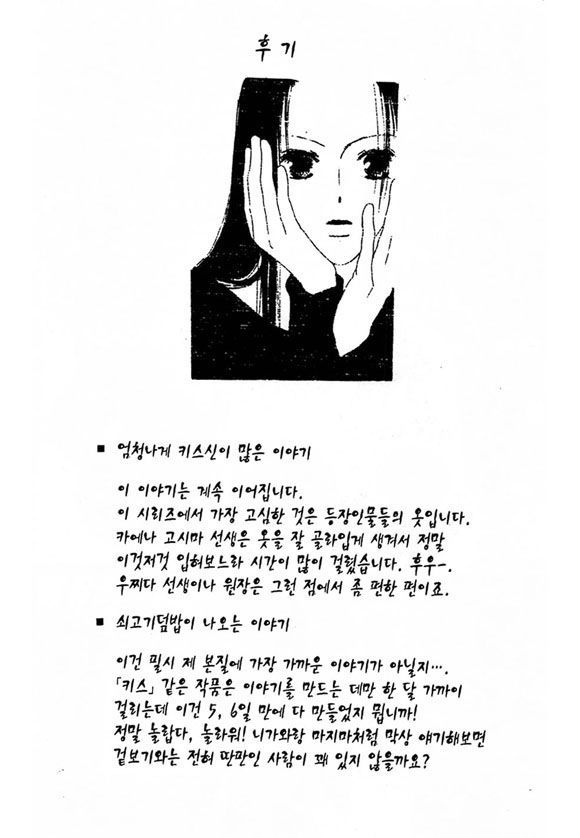 후기
■ 엄청나게 키스신이 많은 이야기
이 이야기는 계속 이어집니다.
이 시리즈에서 가장 고심한 것은 등장인물들의 옷입니다.
카에나 고시마 선생은 옷을 잘 골라입게 생겨서 정말
이것저것 입혀보느라 시간이 많이 걸렸습니다. 후우-.
우찌다 선생이나 원장은 그런 점에서 좀 편한 편이죠.
■ 쇠고기덮밥이 나오는 이야기
이건 필시 제 본질에 가장 가까운 이야기가 아닐지….
「키스」 같은 작품은 이야기를 만드는 데만 한 달 가까이
걸리는데 이건 5, 6일 만에 다 만들었지 뭡니까!
정말 놀랍다, 놀라워! 니가와랑 마지마처럼 막상 얘기해보면
겉보기와는 전혀 딴판인 사람이 꽤 있지 않을까요?